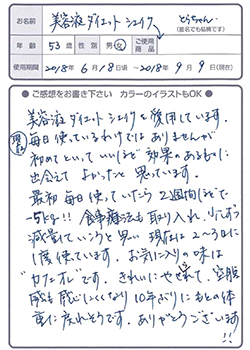 お名前 美容液ダイエットシェイク とらちゃん
(匿名でも結構です)
年齢 53歳 性別 男・女 ご使用商品
使用期間 2018年6月18日頃 ～ 2018年9月9日(現在)
●ご感想をお書き下さい カラーのイラストもOK●
美容液ダイエットシェイクを愛用しています。
現在 毎日使っているわけではありませんが
初めてといっていいほど効果のあるものに
出会えてよかったと思っています。
最初毎日使っていたら2週間ほどで
-5kg!! 食事療法も取り入れ、
減量していこうと思い 現在は2～3日に
1度使っています。お気に入りの味は
"カフェオレ"です。きれいにやせれて、空腹
感も感じにくくなり10年ぶりにもとの体
重に戻れそうです。ありがとうございます
!!